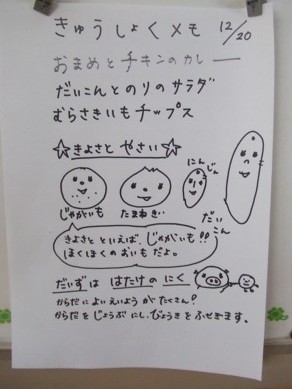 きゅうしょくメモ 12/20
おまめとチキンのカレー
だいこんとのりのサラダ
むらさきいもチップス
☆きよさと やさい☆
じゃがいも
たまねぎ
にんじん
だいこん
きよさと といえば、じゃがいも!!
ほくほくのおいもだよ。
だいずは はたけの にく
からだに よい えいよう が たくさん!
からだ を じょうぶ にし、びょうき を ふせぎます。